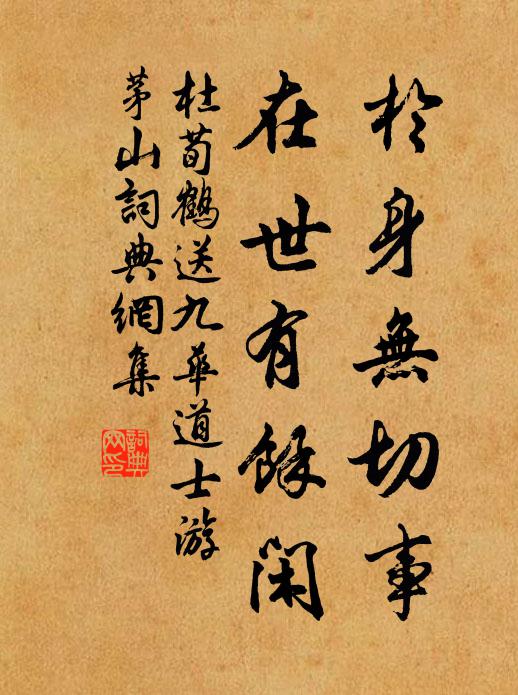 於身無切事
在世有餘閑
杜荀鶴送九華道士游
茅山詞典網集
詞典网印